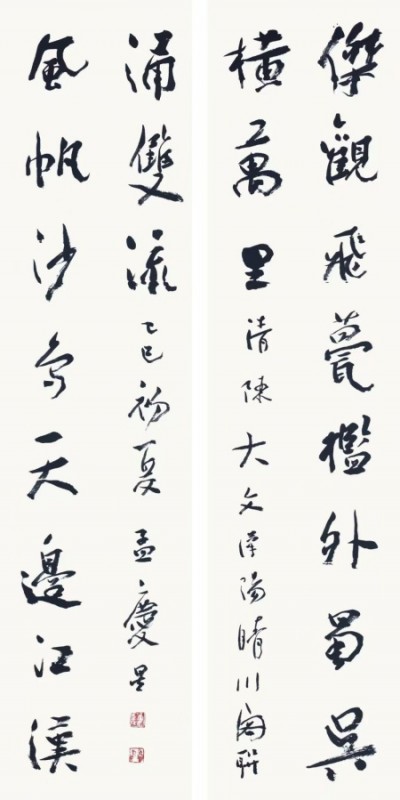 傑觀飛甍檻外蜀吳
橫萬里 清陳大文漢陽晴川閣聯
風帆沙鳥天邊江漢
涌雙流 乙巳初夏 孟慶星